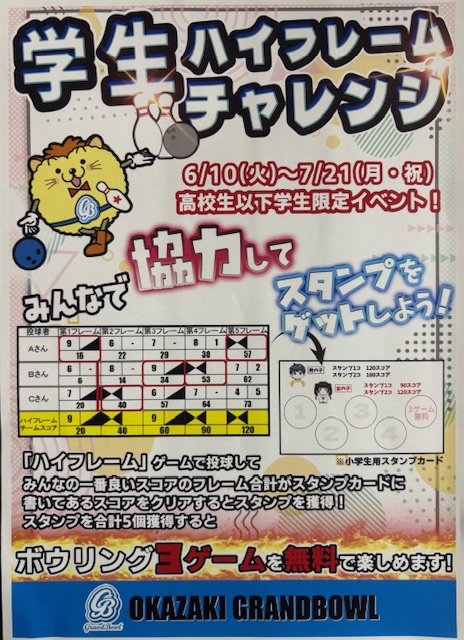 学生ハイフレーム
チャレンジ
6/10(火)～7/21(月・祝)
高校生以下学生限定イベント！
みんなで協力して
スタンプを
ゲットしよう！
投球者 第1フレーム 第2フレーム 第3フレーム 第4フレーム 第5フレーム
Aさん 16 22 29 38 57
Bさん 6 14 34 53 62
Cさん 20 40 57 64 73
ハイフレーム
チームスコア 20 40 60 90 120
スタンプ1コ 120スコア
スタンプ2コ 160スコア
スタンプ1コ 90スコア
スタンプ2コ 120スコア
1 2 3 4
3ゲーム
無料
※小学生用スタンプカード
「ハイフレーム」ゲームで投球して
みんなの一番良いスコアのフレーム合計がスタンプカードに
書いてあるスコアをクリアするとスタンプを獲得！
スタンプを合計5個獲得すると
ボウリング3ゲームを無料で楽しめます!
GB
Grand Bowl
OKAZAKI GRANDBOWL